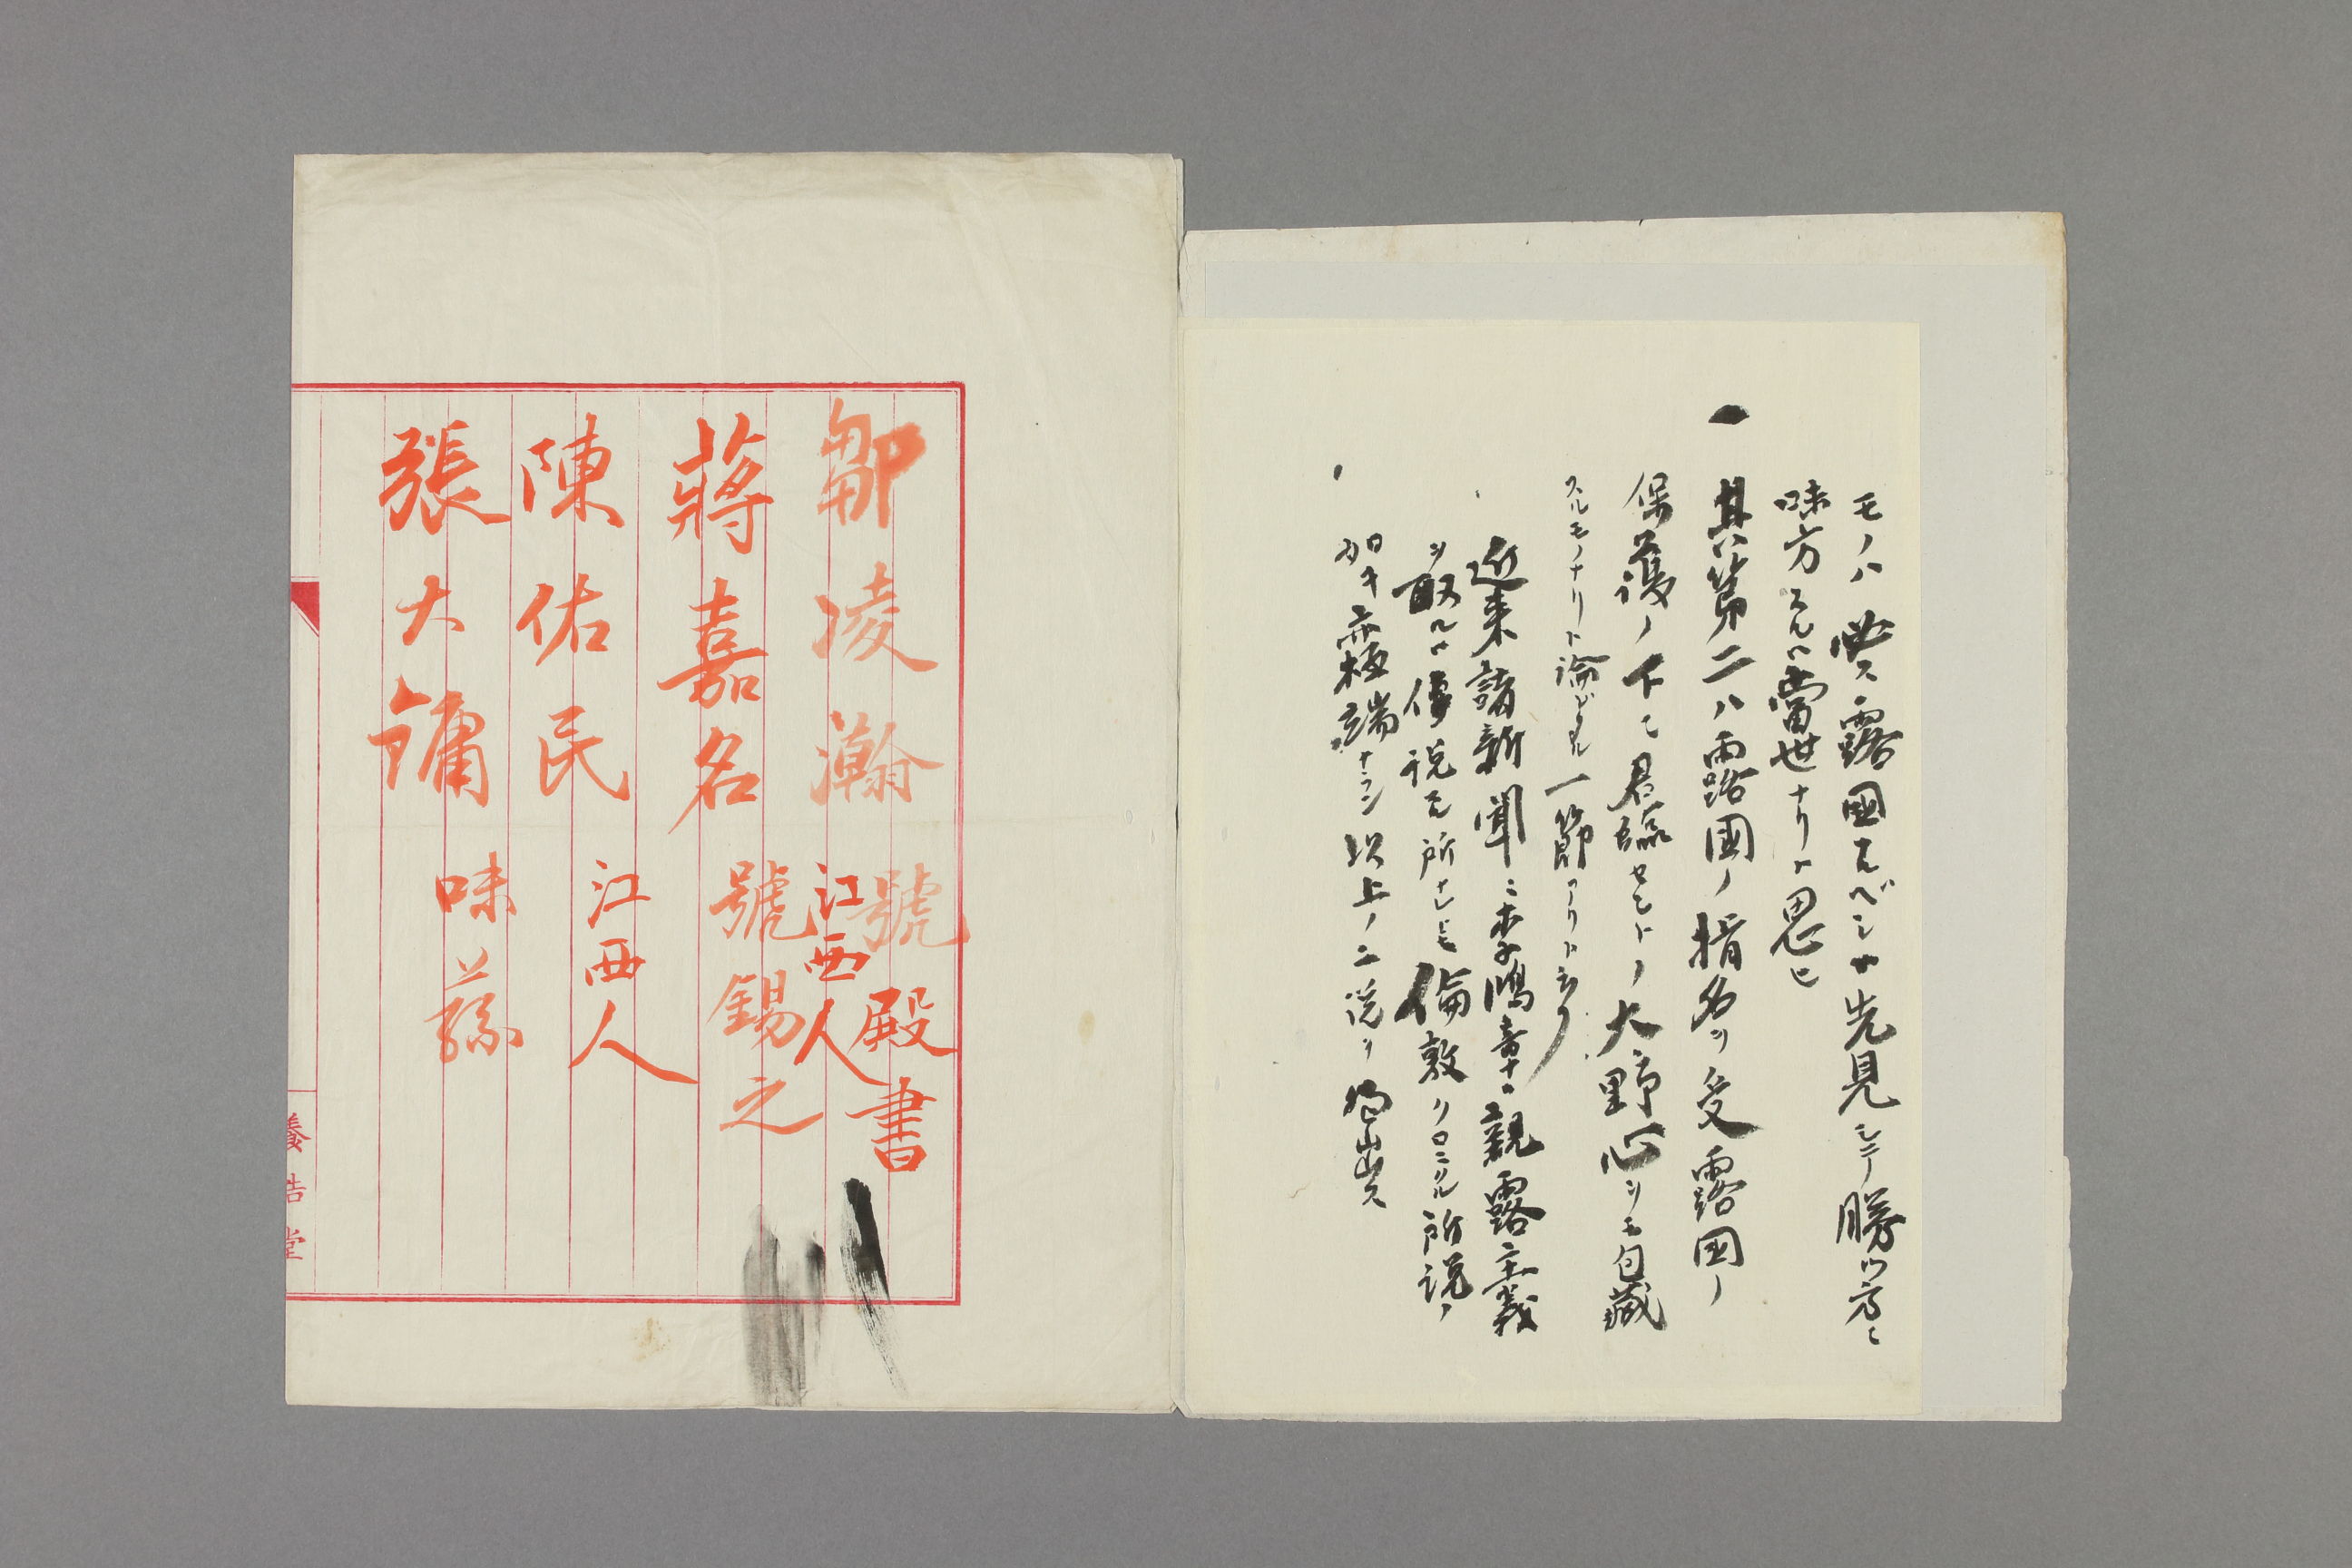 モノハ必ス露國ナルベシサ先見シテ勝ツ方ニ
味方スルハ當世ナリト思ヒ
一 其第二ハ露國ノ指名ヲ受露国ノ
保護ノ下ニ君臨セントノ大野心ヲモ包藏
スルモノナリト論ジタル一節アリト云フ
近来諸新聞ニ李鴻章ガ親露主義
ヲ取ルハ傳説スル所ナレトモ倫敦クロニクル所説ノ
如キ亦極端ナラン以上ノ二説ヲ
鄒凌瀚 號殿書
江西人
蔣嘉名 號錫之
陳佑民 江西人
張大鏞 味蓀
養浩堂